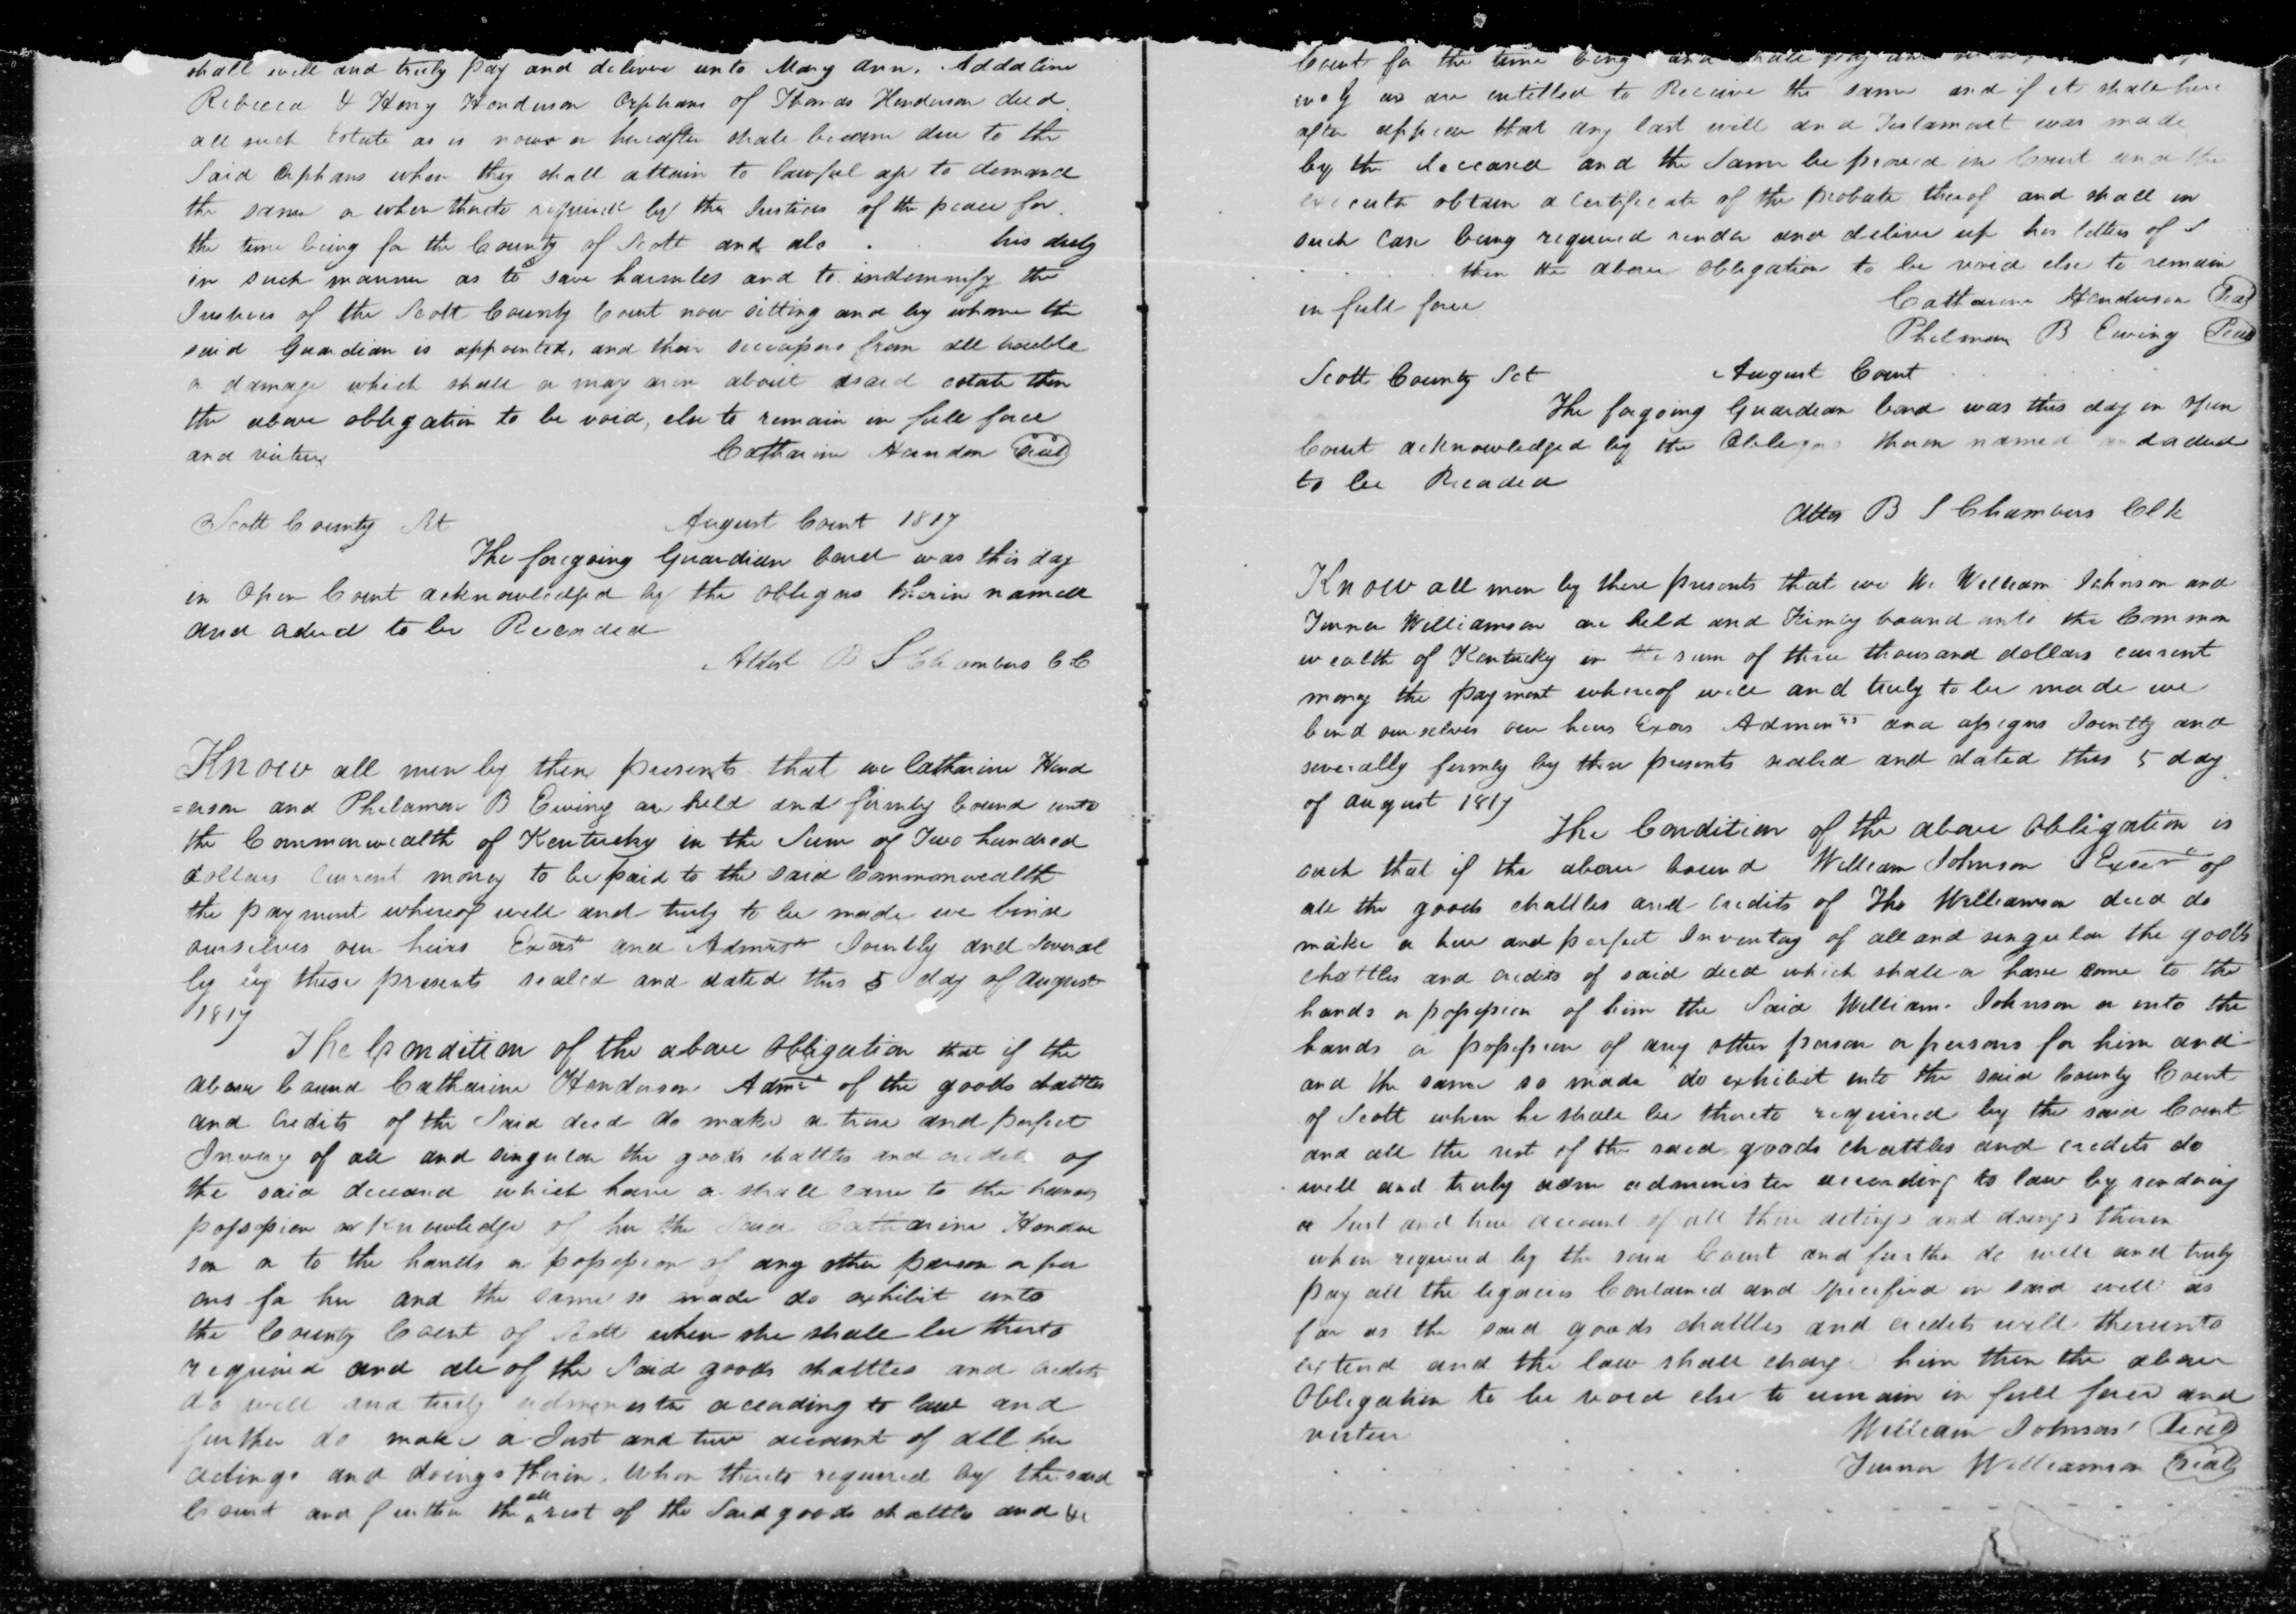 shall well and truly pay and deliver unto Mary Ann. Addaline
Rebecca & Henry Henderson Orphans of Thomas Henderson decd.
all such Estate as is now or hereafter shall become due to the
Said Orphans when they shall attain to lawful age to demand
the same or when thereto required by the Justices of the peace for
the time being for the County of Scott and als his duty
in such manner as to save harmless and to indemnify the
Justices of the Scott County Court now sitting and by whome the
said Guardian is appointed, and their successors from all trouble
or damage which shall or may arise about said estate then
the above obligation to be void, else to remain in full force
and virtue Catharine Hendon Seal
Scott County Sct August Court 1817
The foregoing Guardian bond was this day
in Open Court acknowledged by the obligors therin named
and ordered to be Recorded
Attest B S Chambers C C
Know all men by these presents that we Catharine Hend
=erson and Philamon B Ewing are held and firmly bound unto
the Commonwealth of Kentucky in the Sum of Two hundred
dollars Current money to be paid to the said Commonwealth
the payment whereof well and truly to be made we bind
ourselves our heirs Exors and Admrs Jointly and Several
ly by these presents sealed and dated this 5 day of august
1817
The Condition of the above Obligation that if the
above bound Catharine Henderson Admx of the goods chattles
and credits of the Said decd do make a true and perfect
Invory of all and singular the goods chattles and credits of
the said deceasd which have or shall come to the hands
possession or Knowledge of her the Said Catharine Hender
son or to the hands or possession of any other person or per
ons for her and the same so made do exhibit unto
the County Court of Scott when she shall be therto
required and all of the Said goods chattles and credits
do well and truly administer according to law and
further do make a Just and true account of all her
actings and doings therin. When thereto required by the said
Court and further the all rest of the Said goods chattles and
Court for the time being and shall pay
ively as are entitled to Receive the same and if it shall here
after appear that any last will and Testament was made
by the deceased and the Same be proved in Court and the
executor obtain a certificate of the probate therof and shall in
such case being required render and deliver up her letters of
then the above obligation to be void else to remain
in full force Catharine Henderson Seal
Philmon B Ewing Seal
Scott County Sct August Court
The forgoing Guardian bond was this day in open
Court acknowledged by the therin named
to be Recorded
Attes B S Chambers Clk
Know all men by these presents that we W. William Johnson and
Turner Williamson are held and Firmly bound unto the Common
wealth of Kentucky in the sum of three thousand dollars current
money the payment whereof well and truly to be made we
bind ourselves our heirs Exors Adminrs and assigns Jointly and
severally firmly by these presents sealed and dated this 5 day
of august 1817
The Condition of the above Obligation is
such that if the above bound William Johnson Execr of
all the goods chattles and credits of Tho Williamson decd do
make a true and perfect Inventory of all and singular the goods
chattles and credits of said decd which shall or have come to the
hands or possession of him the Said William Johnson or into the
hands or possession of any other person or persons for him and
and the same so made do exhibit into the said County Court
of Scott when he shall be thereto required by the said Court
and all the rest of the said goods chattles and credits do
well and truly adm administer according to law by rendring
a Just and true account of all their actings and doings therein
when required by the said Court and further do well and truly
pay all the legacies Contained and Specified in said will as
far as the said goods chattles and credits will thereunto
extend and the law shall charge him then the above
Obligation to be void else to remain in full force and
virtue William Johnson Seal
Turner Williamson Seal